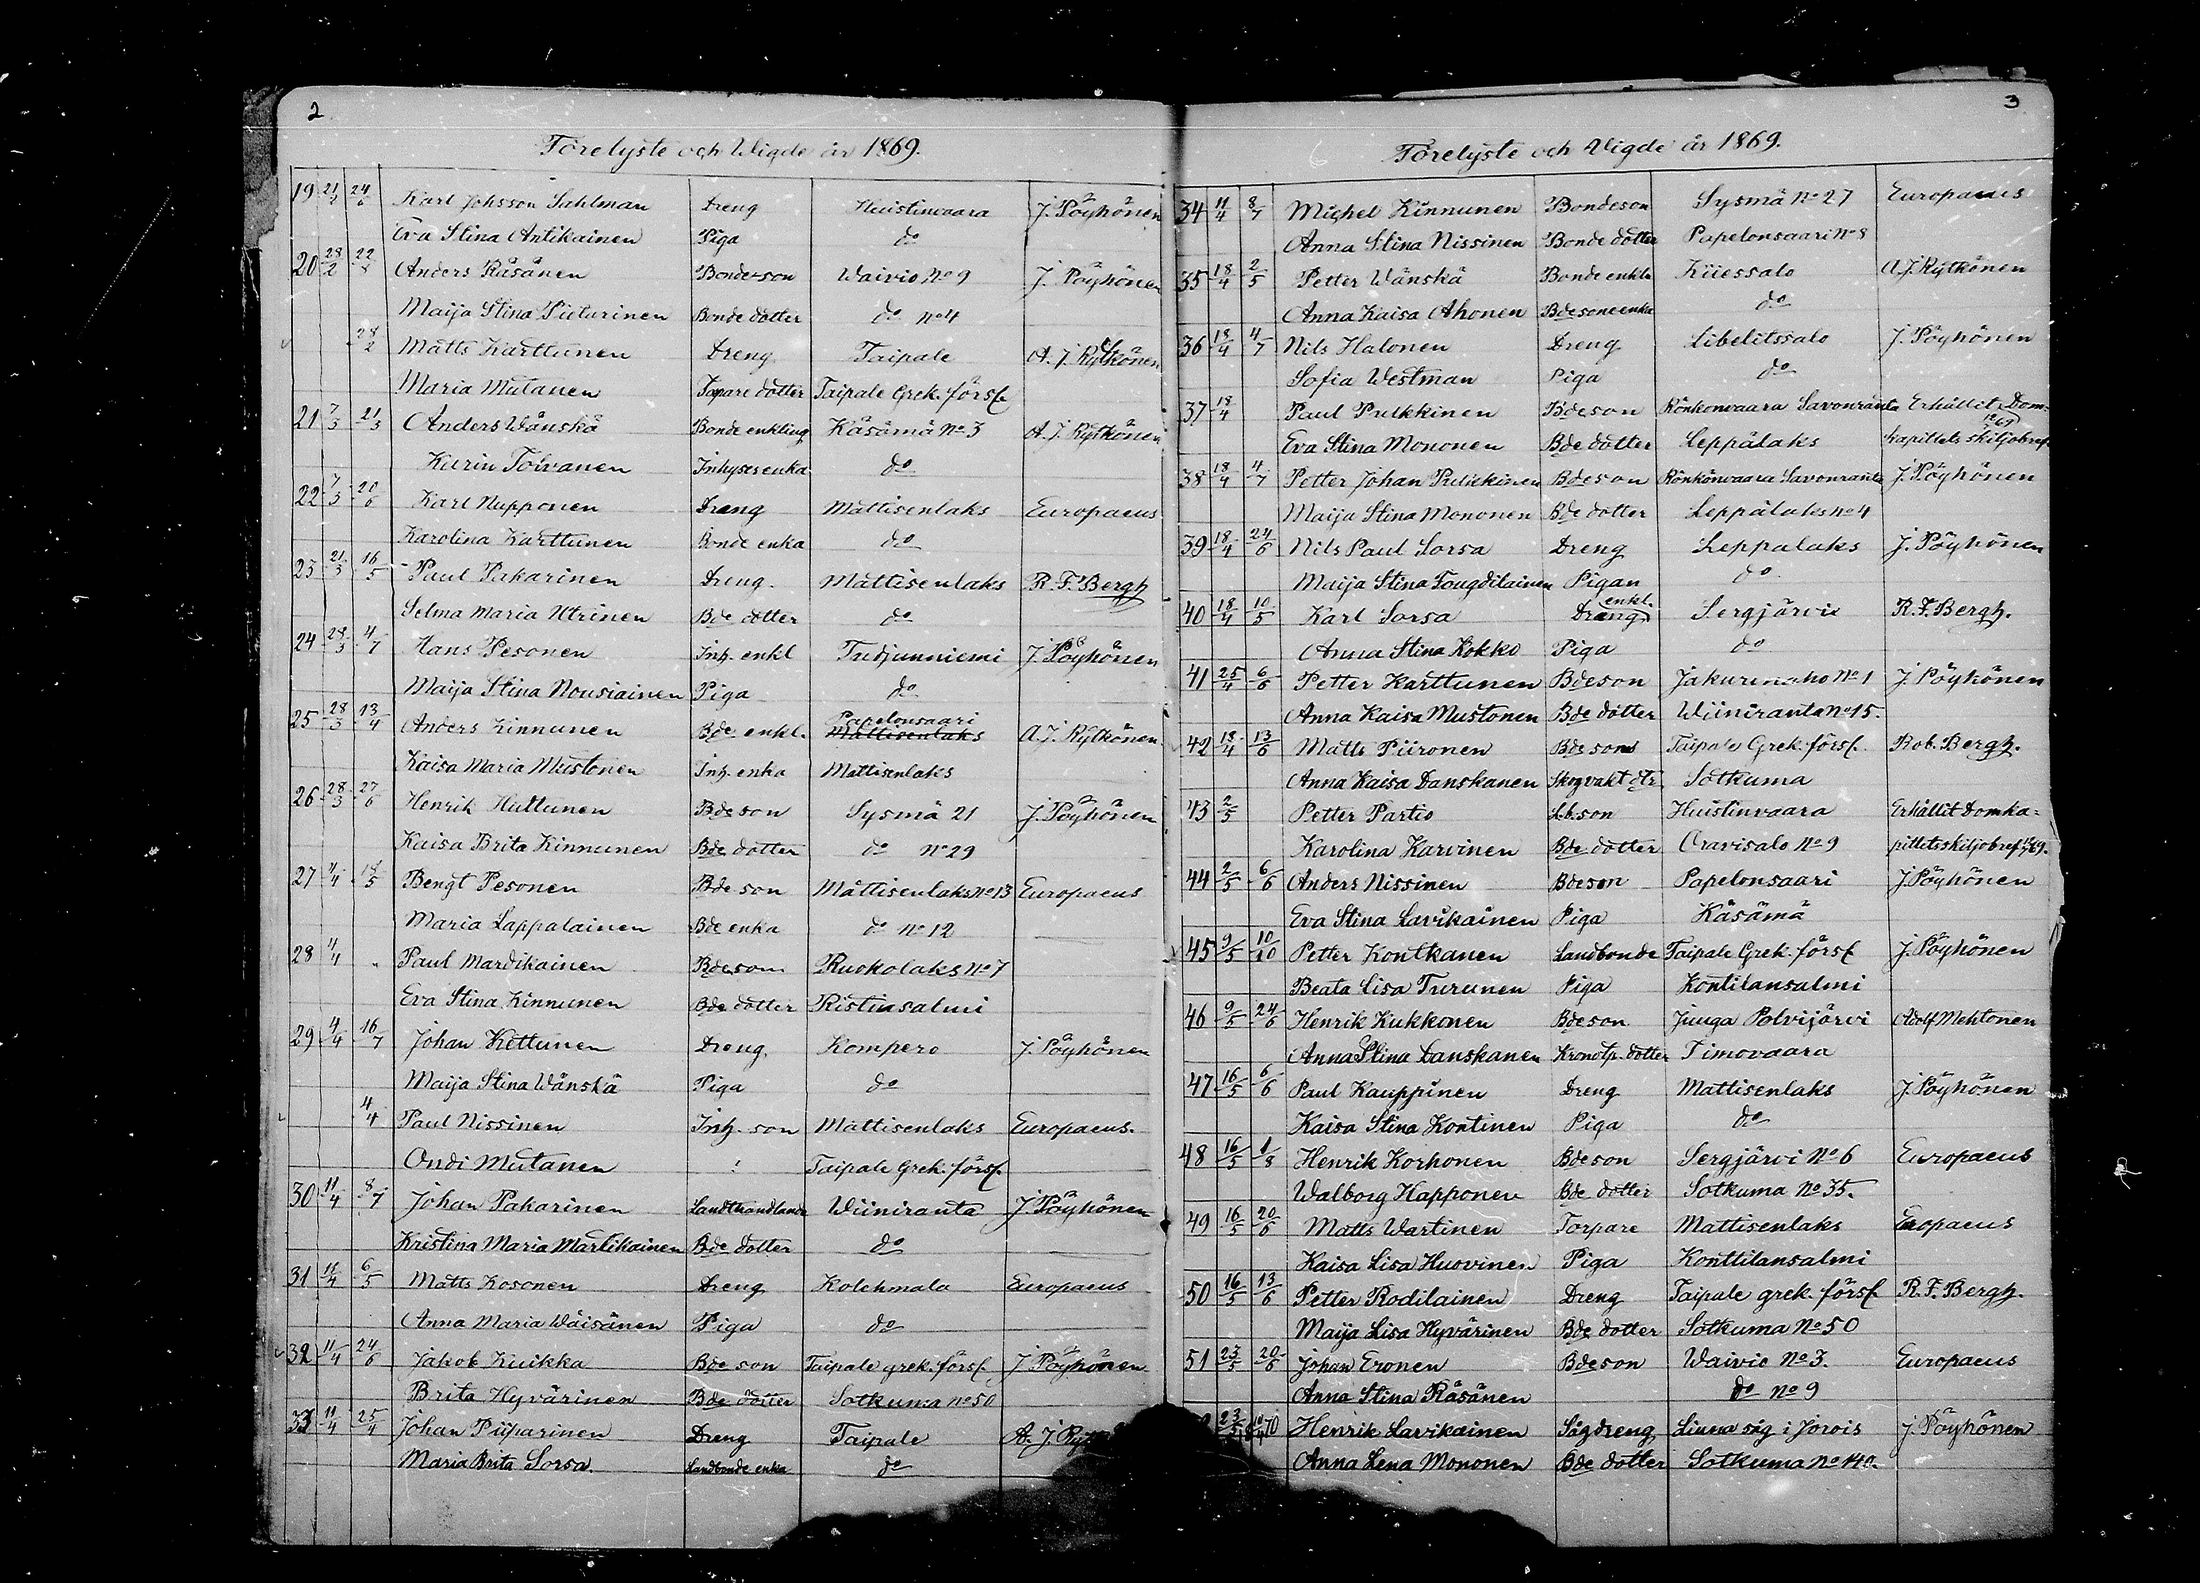 2
Förelyste och Wigde år 1869.
19 21/2 24/6 Karl Johsson Sahlman Dreng Huistinvaara J. Pöyhönen
Eva Stina Antikainen Piga do
20 28/2 Anders Räsänen Bondeson Waivio No 9 J. Pöyhönen
Maija Stina Pieturinen Bonde dotter do No 4
28/2 Matts Karttunen Dreng Taipale A. J. Rytkönen
Maria Mutanen Torpare dotter Taipale Grek. förs.
21 7/3 21/3 Anders Wänskä Bonde enkling Käsämä No 3 A. J. Rytkönen
Karin Toivanen Inhyses enka do
22 7/3 20/6 Karl Nupponen Dreng Mattisenlaks Europaeus
Karolina Karttunen Bonde enka do
23 21/3 16/5 Paul Pakarinen Dreng Mattisenlaks R. F. Bergh
Selma Maria Utrinen Bde dotter do
24 28/3 4/7 Hans Pesonen Inh. enkl Tudjunniemi J. Pöyhönen
Maija Stina Nousiainen Piga do
25 28/3 13/4 Anders Kinnunen Bde enkl. Papelonsaari Mattisenlaks A. J. Rytkönen
Kaisa Maria Mustonen Inh. enka Mattisenlaks
26 28/3 27/6 Henrik Huttunen Bde son Sysmä 21 J. Pöyhönen
Kaisa Brita Kinnunen Bde dotter do No 29
27 4/4 18/5 Bengt Pesonen Bde son Mattisenlaks No 13 Europaeus
Maria Lappalainen Bde enka do No 12
28 4/4 Paul Mardikainen Bde son Ruokolaks No 7
Eva Stina Kinnunen Bde dotter Ristinsalmi
29 4/4 16/7 Johan Kettunen Dreng Kompero J. Pöyhönen
Maija Stina Wänskä Piga do
4/4 Paul Nissinen Inh. son Mattisenlaks Europaeus.
Ondi Mutanen Taipale Grek. förs.
30 11/4 8/7 Johan Pakarinen Landthandlande Wiiniranta J. Pöyhönen
Kristina Maria Martikainen Bde dotter do
31 11/4 6/5 Matts Kosonen Dreng Kolehmala Europaeus
Anna Maria Wäisänen Piga do
32 11/4 24/6 Jakob Kuikka Bde son Taipale grek. förs. J. Pöyhönen
Brita Hyvärinen Bde dotter Sotkuma No 50
33 11/4 25/4 Johan Piiparinen Dreng Taipale A. J.
Maria Brita Sorsa. Landbonde enka do
3
Förelyste och Vigde år 1869.
34 11/4 8/7 Michel Kinnunen Bondeson Sysmä No 27 Europaeus
Anna Stina Nissinen Bonde dotter Papelonsaari No 8
35 18/4 2/5 Petter Wänskä Bonde enkl Kiiessalo A. J. Rytkönen
Anna Kaisa Ahonen Bdesone enka do
36 18/4 4/7 Nils Halonen Dreng Libelitssalo J. Pöyhönen
Sofia Westman Piga do
37 18/4 Paul Pulkkinen Bdeson Rönkönvaara Savonranta Erhållit Dom-
Eva Stina Mononen Bde dotter Leppälaks kapitlets skiljobref
38 18/4 4/7 Petter Johan Pulkkinen Bdeson Rönkönvaara Savonranta J. Pöyhönen
Maija Stina Mononen Bde dotter Leppälaks No 4
39 18/4 24/6 Nils Paul Sorsa Dreng Leppalaks J. Pöyhönen
Maija Stina Fougdilainen Pigan do
40 18/4 10/5 Karl Sorsa Dreng enkl. Sergjärvi R. F. Bergh.
Anna Stina Kokko Piga do
41 25/4 6/6 Petter Karttunen Bdeson Jakurinaho No 1 J. Pöyhönen
Anna Kaisa Mustonen Bde dotter Wiiniranta No 15.
42 18/4 13/6 Matts Piironen Bde son Taipale Grek. förs. Rob. Bergh.
Anna Kaisa Danskanen Skogvakt dtr Sotkuma
43 2/5 Petter Partio Lb.son Huistinvaara Erhållit Domka=
Karolina Karvinen Bde dotter Oravisalo No 9 pitlets skiljobref
44 2/5 6/6 Anders Nissinen Bdeson Papelonsaari J. Pöyhönen
Eva Stina Lavikainen Piga Käsämä
45 9/5 10/10 Petter Kontkanen Landbonde Taipale Grek. förs. J. Pöyhönen
Beata Lisa Turunen Piga Kontilansalmi
46 9/5 24/6 Henrik Kukkonen Bdeson Juuga Polvijärvi Adolf Mehtonen
Anna Stina Danskanen Kronotp. dotter Timovaara
47 16/5 6/6 Paul Kauppinen Dreng Mattisenlaks J. Pöyhönen
Kaisa Stina Kontinen Piga do
48 16/5 1/8 Henrik Korhonen Bdeson Sergjärvi No 6 Europaeus
Walborg Happonen Bde dotter Sotkuma No 35.
49 16/5 20/6 Matts Wartinen Torpare Mattisenlaks Eropaeus
Kaisa Lisa Huovinen Piga Konttilansalmi
50 16/5 13/6 Petter Rodilainen Dreng Taipale grek. förs. R. F. Bergh.
Maija Lisa Hyvärinen Bde dotter Sotkuma No 50
51 23/5 20/6 Johan Eronen Bdeson Waivio No 3. Europaeus
Anna Stina Räsänen do No 9
23/5 Henrik Lavikainen Sågdreng Liuna såg i Jorois J. Pöyhönen
Anna Lena Mononen Bde dotter Sotkuma No 40.